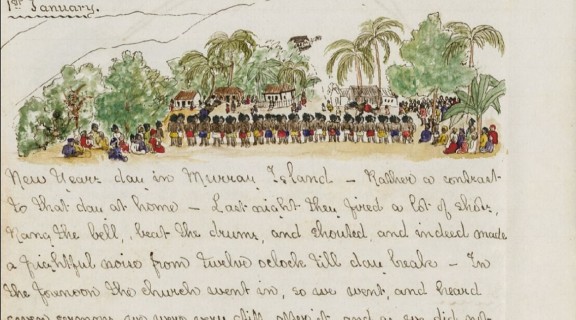 1st January.
New Years day in Murray Island – Rather a contrast
to that day at home – Last night they fired a lot of shots,
rang the bell, beat the drums, and shouted, and indeed made
a frightful noise from twelve oclock till day break – In
the forenoon the church went in, so we went, and heard
seven sermons, we were very stiff after it, and as we did not